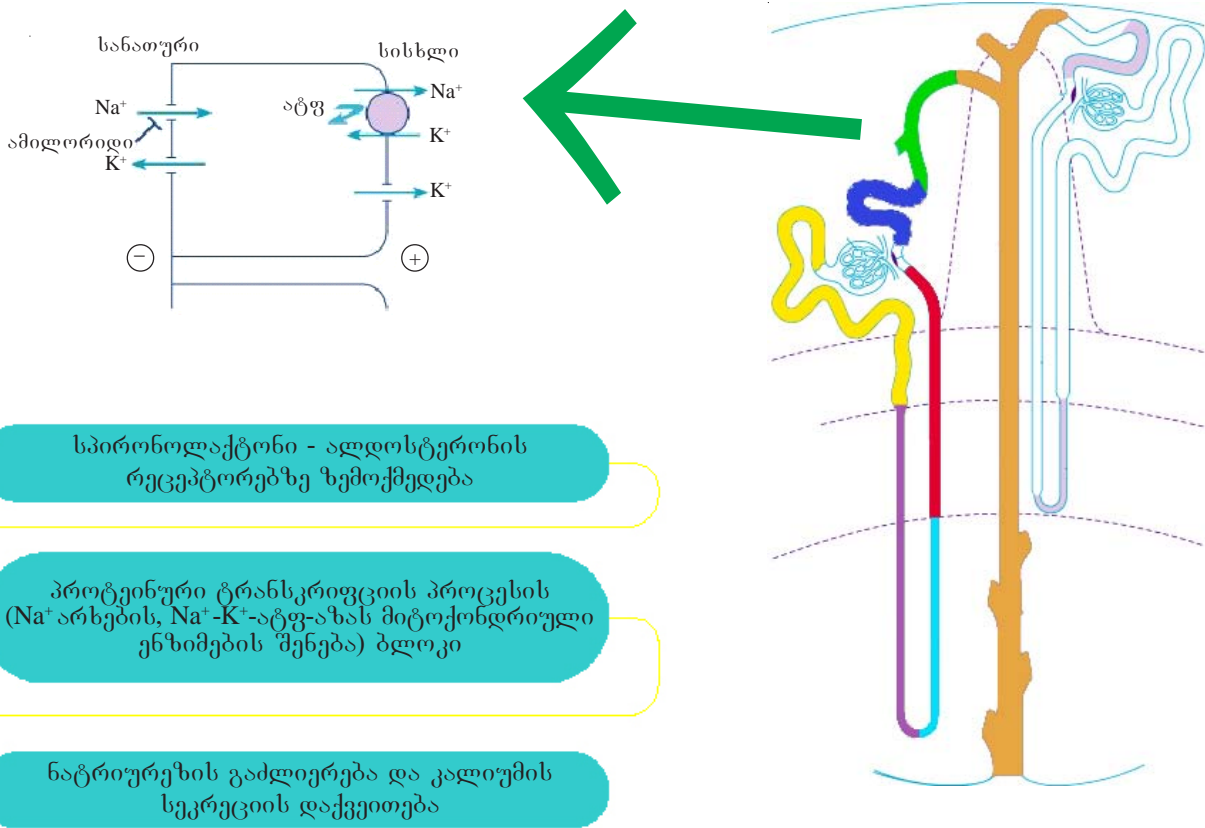 სანათური
სისხლი
Na⁺
Na⁺
ატფ
ამილორიდი
K⁺
K⁺
K⁺
−
+
სპირონოლაქტონი - ალდოსტერონის
რეცეპტორებზე ზემოქმედება
პროტეინური ტრანსკრიფციის პროცესის
(Na⁺ არხების, Na⁺-K⁺-ატფ-აზას მიტოქონდრიული
ენზიმების შენება) ბლოკი
ნატრიურეზის გაძლიერება და კალიუმის
სეკრეციის დაქვეითება